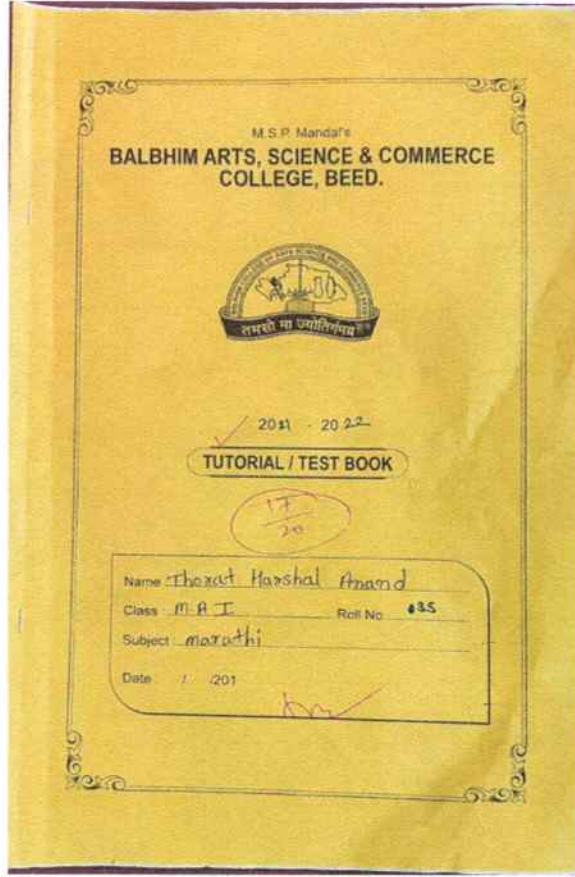 M.S.P. Mandal's
BALBHIM ARTS, SCIENCE & COMMERCE
COLLEGE, BEED.
तमसो मा ज्योतिर्गमय
2021 - 2022
TUTORIAL / TEST BOOK
17
20
Name Thorat Harshal Anand
Class M A I Roll No 035
Subject marathi
Date / /201